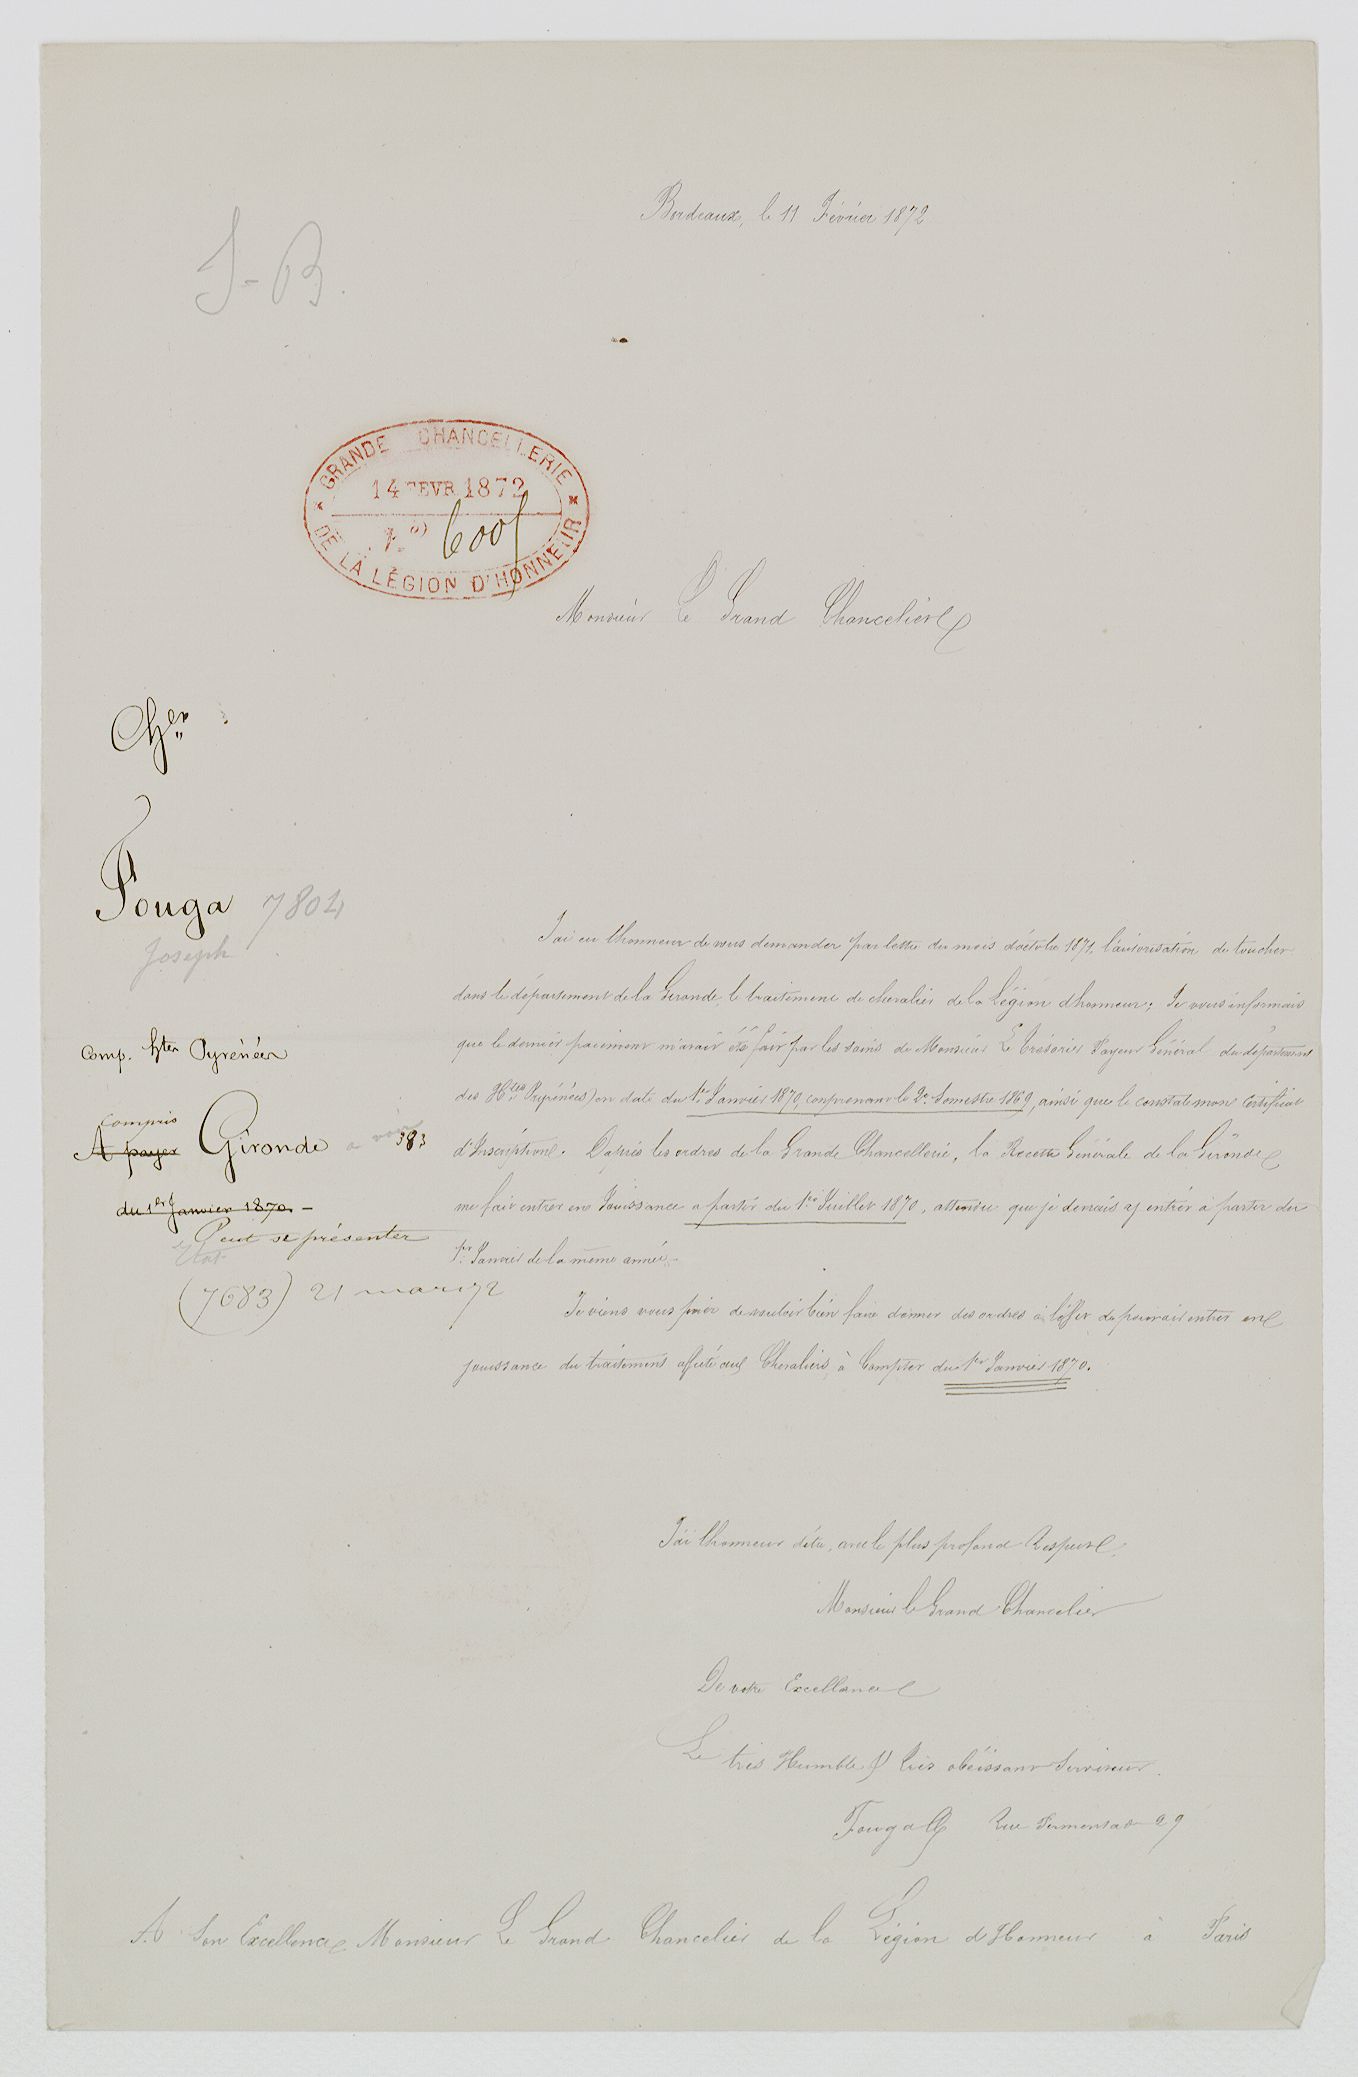 Bordeaux, le 11 Février 1872
J-B.
GRANDE CHANCELLERIE
14 FEVR 1872
N°
DE LA LÉGION D'HONNEUR
Monsieur Le Grand Chancelier
Cher
Fouga 7804
Joseph
J'ai eu l'honneur de vous demander par lettre du mois d'octobre 1871, l'autorisation de toucher
dans le département de la Gironde, le traitement de chevalier de la Légion d'honneur; Je vous informais
que le dernier paiement m'avait été fait par les soins de Monsieur Le Trésorier Payeur Général du département
des Htes Pyrénées) en date du 1er Janvier 1870, comprenant le 2e Semestre 1869, ainsi que le constate mon Certificat
d'Inscription. D'après les ordres de la Grande Chancellerie, la Recette Générale de la Gironde
me fait entrer en Jouissance a partir du 1er Juillet 1870, attendu que je demais y entrer à partir du
1er Janvier de la même année.
Je viens vous prier de vouloir bien faire donner des ordres à l'effet de pouvoir entrer en
jouissance du traitement affecté aux Chevaliers, à Compter du 1er Janvier 1870.
Comp. Htes Pyrénées
Compris
A payer Gironde a voir 383
du 1er Janvier 1870. -
Peut se présenter
Etat
(7683) 21 mars 72
J'ai l'honneur d'être, avec le plus profond Respect,
Monsieur le Grand Chancelier
De votre Excellence
Le très Humble & très obéissant Serviteur.
Fouga Rue 29
A Son Excellence Monsieur Le Grand Chancelier de la Légion d'Honneur à Paris